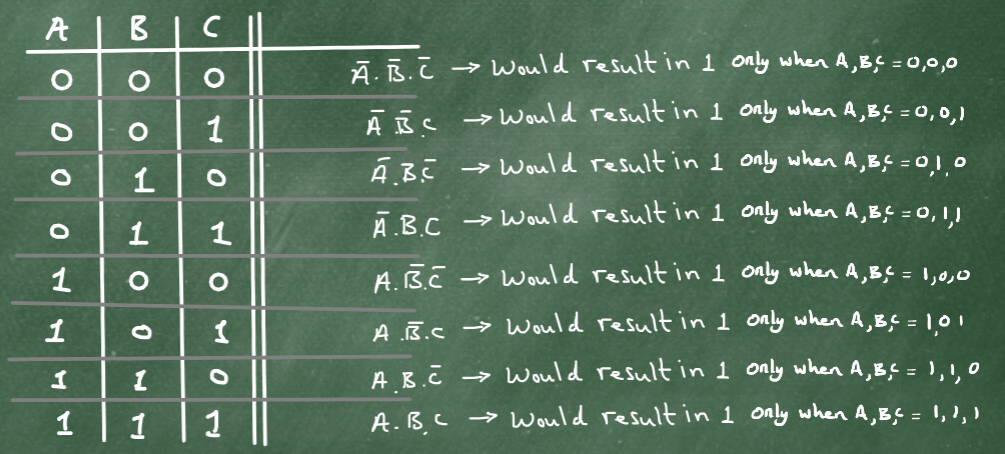 A B C
0 0 0 Ā.B̄.C̄ → Would result in 1 only when A,B,C = 0,0,0
0 0 1 Ā B̄.C → Would result in 1 only when A,B,C = 0,0,1
0 1 0 Ā.B.C̄ → Would result in 1 only when A,B,C = 0,1,0
0 1 1 Ā.B.C → Would result in 1 only when A,B,C = 0,1,1
1 0 0 A.B̄.C̄ → Would result in 1 only when A,B,C = 1,0,0
1 0 1 A.B̄.C → Would result in 1 only when A,B,C = 1,0 1
1 1 0 A.B.C̄ → Would result in 1 only when A,B,C = 1,1,0
1 1 1 A.B.C → Would result in 1 only when A,B,C = 1,1,1